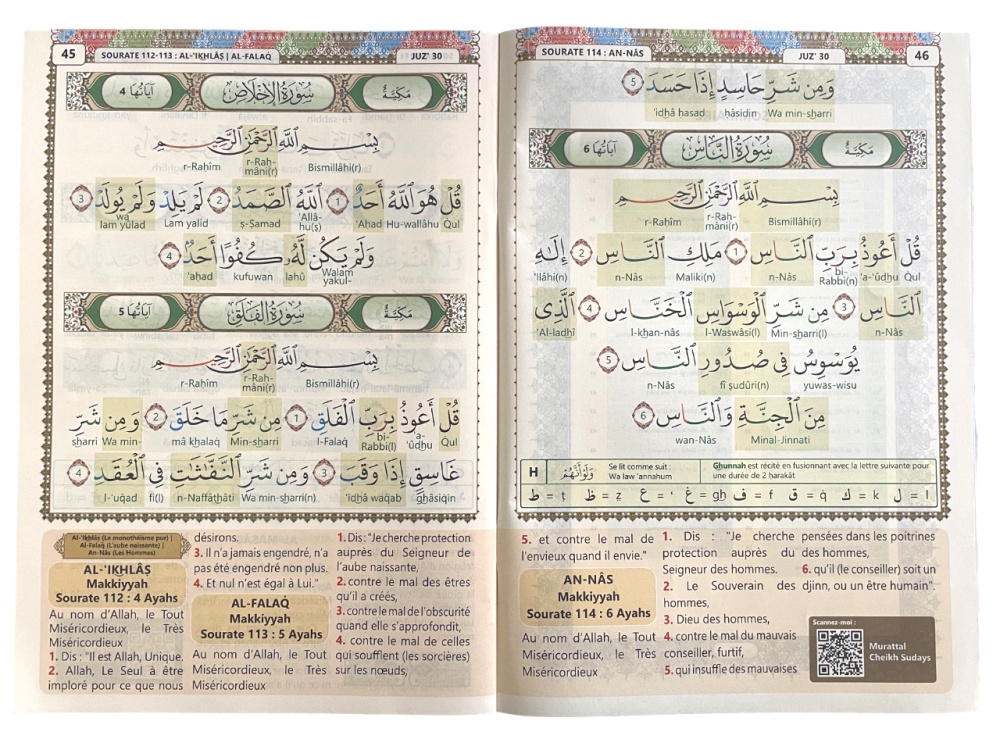 45
SOURATE 112-113 : AL-'IKHLÂṢ | AL-FALAQ̇
JUZ' 30
مَكِّيَّةٌ
سُورَةُ الإِخْلَاصِ
آيَاتُهَا 4
بِسْمِ ٱللَّهِ ٱلرَّحْمَٰنِ ٱلرَّحِيمِ
Bismillâhi(r) r-Raḥ-mâni(r) r-Raḥîm
قُلْ هُوَ ٱللَّهُ أَحَدٌ 1 ٱللَّهُ ٱلصَّمَدُ 2 لَمْ يَلِدْ وَلَمْ يُولَدْ 3
Q̇ul Hu-wallâhu 'Aḥad 'Allâ-hu(ṣ) ṣ-Ṣamad Lam yalid wa lam yûlad
وَلَمْ يَكُن لَّهُۥ كُفُوًا أَحَدٌۢ 4
Walam yakul- lahû kufuwan 'aḥad
مَكِّيَّةٌ
سُورَةُ الْفَلَقِ
آيَاتُهَا 5
بِسْمِ ٱللَّهِ ٱلرَّحْمَٰنِ ٱلرَّحِيمِ
Bismillâhi(r) r-Raḥ-mâni(r) r-Raḥîm
قُلْ أَعُوذُ بِرَبِّ ٱلْفَلَقِ 1 مِن شَرِّ مَا خَلَقَ 2 وَمِن شَرِّ
Q̇ul 'a-'ûdhu bi-Rabbi(l) l-Falaq̇ Min-sharri mâ khalaq̇ Wa min- sharri
غَاسِقٍ إِذَا وَقَبَ 3 وَمِن شَرِّ ٱلنَّفَّٰثَٰتِ فِى ٱلْعُقَدِ 4
ghâsiq̇in 'idhâ waq̇ab Wa min-sharri(n) n-Naffâthâti fi(l) l-'uq̇ad
Al-'Ikhlâṣ (Le monothéisme pur) |
Al-Falaq̇ (L'aube naissante) |
An-Nâs (Les Hommes)
AL-'IKHLÂṢ
Makkiyyah
Sourate 112 : 4 Ayahs
Au nom d'Allah, le Tout
Miséricordieux, le Très
Miséricordieux
1. Dis : "Il est Allah, Unique.
2. Allah, Le Seul à être
imploré pour ce que nous
désirons.
3. Il n'a jamais engendré, n'a
pas été engendré non plus.
4. Et nul n'est égal à Lui."
AL-FALAQ̇
Makkiyyah
Sourate 113 : 5 Ayahs
Au nom d'Allah, le Tout
Miséricordieux, le Très
Miséricordieux
1. Dis: "Je cherche protection
auprès du Seigneur de
l'aube naissante,
2. contre le mal des êtres
qu'il a créés,
3. contre le mal de l'obscurité
quand elle s'approfondit,
4. contre le mal de celles
qui soufflent (les sorcières)
sur les nœuds,
SOURATE 114 : AN-NÂS
JUZ' 30
46
وَمِن شَرِّ حَاسِدٍ إِذَا حَسَدَ 5
Wa min-sharri ḥâsidin 'idhâ ḥasad
مَكِّيَّةٌ
سُورَةُ النَّاسِ
آيَاتُهَا 6
بِسْمِ ٱللَّهِ ٱلرَّحْمَٰنِ ٱلرَّحِيمِ
Bismillâhi(r) r-Raḥ-mâni(r) r-Raḥîm
قُلْ أَعُوذُ بِرَبِّ ٱلنَّاسِ 1 مَلِكِ ٱلنَّاسِ 2 إِلَٰهِ
Q̇ul 'a-'ûdhu bi-Rabbi(n) n-Nâs Maliki(n) n-Nâs 'Ilâhi(n)
ٱلنَّاسِ 3 مِن شَرِّ ٱلْوَسْوَاسِ ٱلْخَنَّاسِ 4 ٱلَّذِى
n-Nâs Min-sharri(l) l-Waswâsi(l) l-khan-nâs 'Al-ladhî
يُوَسْوِسُ فِى صُدُورِ ٱلنَّاسِ 5
yuwas-wisu fî ṣudûri(n) n-Nâs
مِنَ ٱلْجِنَّةِ وَٱلنَّاسِ 6
Minal-Jinnati wan-Nâs
H
وَلَوْ أَنَّهُمْ
Se lit comme suit :
Wa law 'annahum
Ghunnah est récité en fusionnant avec la lettre suivante pour
une durée de 2 ḥarakât
ط = ṭ ظ = ẓ ع = ʿ غ = gh ف = f ق = q̇ ك = k ل = l
5. et contre le mal de
l'envieux quand il envie."
AN-NÂS
Makkiyyah
Sourate 114 : 6 Ayahs
Au nom d'Allah, le Tout
Miséricordieux, le Très
Miséricordieux
1. Dis : "Je cherche
protection auprès du
Seigneur des hommes.
2. Le Souverain des
hommes,
3. Dieu des hommes,
4. contre le mal du mauvais
conseiller, furtif,
5. qui insuffle des mauvaises
pensées dans les poitrines
des hommes,
6. qu'il (le conseiller) soit un
djinn, ou un être humain".
Scannez-moi :
Murattal
Cheikh Sudays